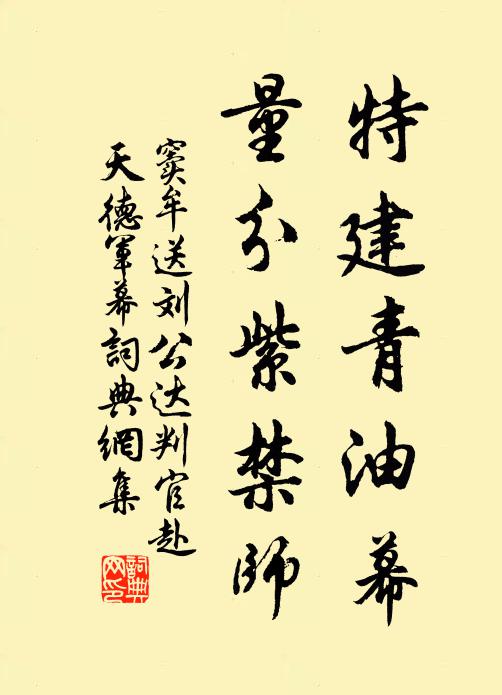 特建青油幕
量分紫禁师
窦牟送刘公达判官赴
天德军幕詞典網集
詞典
网印